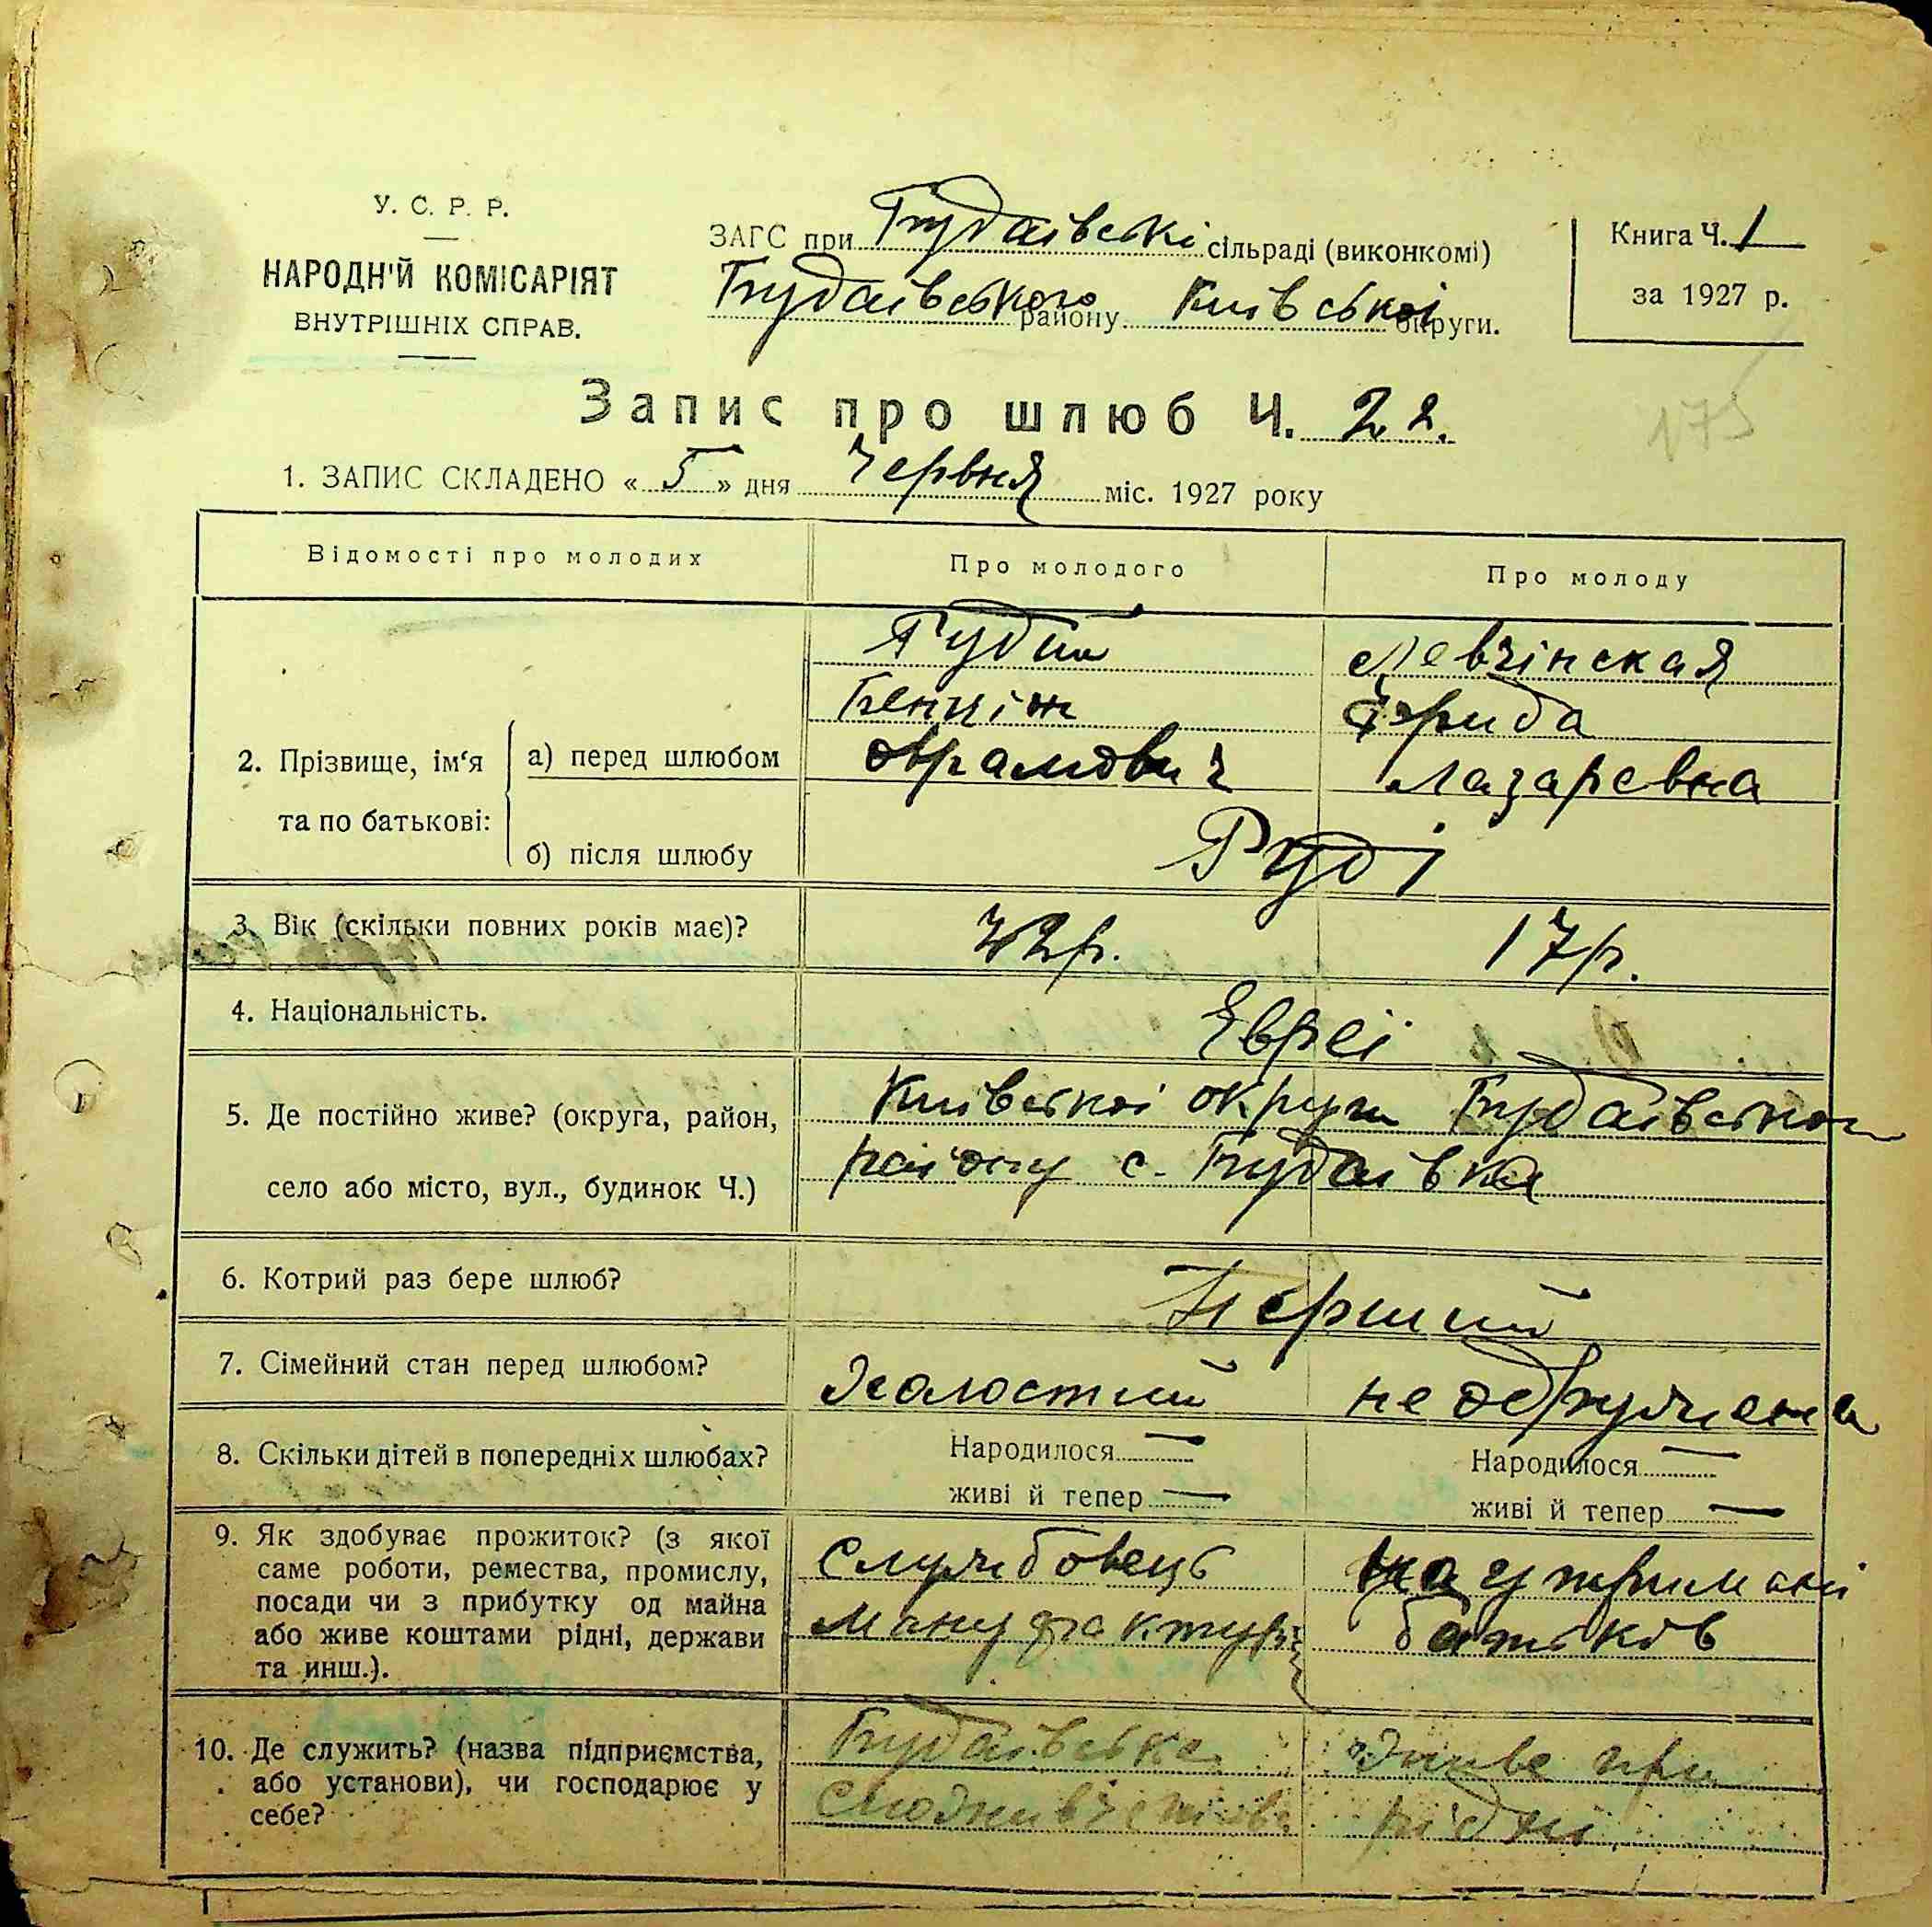 У. С. Р. Р.
НАРОДН'Й КОМІСАРІЯТ
ВНУТРІШНІХ СПРАВ.
ЗАГС при Будаївські сільраді (виконкомі)
Будаївського району Київської округи.
Книга Ч. 1
за 1927 р.
Запис про шлюб Ч. 22.
1. ЗАПИС СКЛАДЕНО « 5 » дня Червня міс. 1927 року
Відомості про молодих Про молодого Про молоду
2. Прізвище, ім‘я та по батькові:
а) перед шлюбом
Рудий
Бенціон
Аврамович
Левчінская
Фрида
Лазаревна
б) після шлюбу
Руді
3. Вік (скільки повних років має)? 32р. 17р.
4. Національність. Евреі
5. Де постійно живе? (округа, район,
село або місто, вул., будинок Ч.)
Київскоі округи Будаївского
району с. Будаівка
6. Котрий раз бере шлюб? Перший
7. Сімейний стан перед шлюбом? Холостий не обружена
8. Скільки дітей в попередніх шлюбах? Народилося — Народилося —
живі й тепер — живі й тепер —
9. Як здобуває прожиток? (з якої
саме роботи, ремества, промислу,
посади чи з прибутку од майна
або живе коштами рідні, держави
та инш.).
Службовець
Мануфактурі
на утримані
батьків
10. Де служить? (назва підприємства,
або установи), чи господарює у
себе?
Будаівське
Живе при
рідні
175